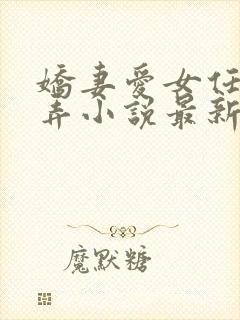 嬌妻愛女任
弄小説最新
魔默糖